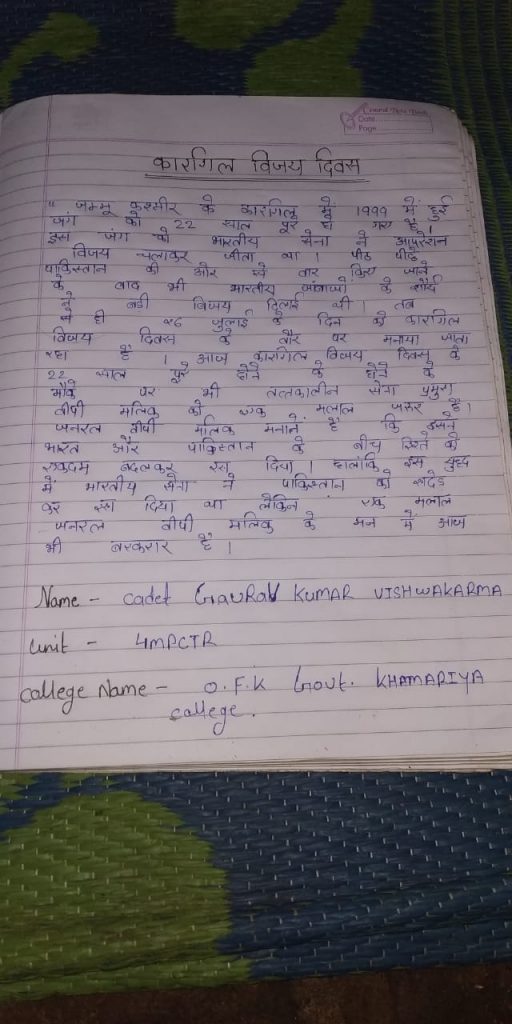 Date
Page
कारगिल विजय दिवस
" जम्मू कश्मीर के कारगिल में 1999 में हुई
जंग को 22 साल पूरे हो गए हैं।
इस जंग को भारतीय सेना ने आपरेशन
विजय चलाकर जीता था। पीठ पीछे
पाकिस्तान की ओर से वार किए जाने
के बाद भी भारतीय जांबाजों के शौर्य
ने बड़ी विजय दिलाई थी। तब
से ही २६ जुलाई के दिन को कारगिल
विजय दिवस के तौर पर मनाया जाता
रहा है। आज कारगिल विजय दिवस के
22 साल पूरे होने के होने के
मौके पर भी तत्कालीन सेना प्रमुख
वीपी मलिक को एक मलाल जरूर है।
जनरल वीपी मलिक मनाते है कि इसने
भारत और पाकिस्तान के बीच रिश्ते को
एकदम बदलकर रख दिया। हालांकि इस युद्ध
में भारतीय सेना ने पाकिस्तान को खदेड
कर रख दिया था लेकिन एक मलाल
जनरल वीपी मलिक के मन में आज
भी बरकरार है।
Name - Cadet GAURAV KUMAR VISHWAKARMA
Unit - 4MPCTR
College Name - O.F.K Govt. KHAMARIYA
College.